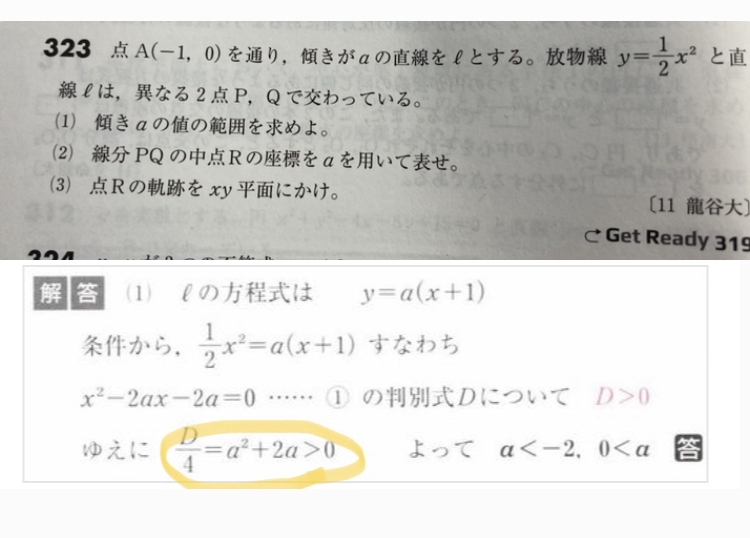 323 点 A(−1, 0) を通り，傾きが a の直線を ℓ とする。放物線 y=1/2 x² と直
線 ℓ は，異なる 2 点 P，Q で交わっている。
(1) 傾き a の値の範囲を求めよ。
(2) 線分 PQ の中点 R の座標を a を用いて表せ。
(3) 点 R の軌跡を xy 平面にかけ。
〔11 龍谷大〕
Get Ready 319
解答 (1) ℓ の方程式は y=a(x+1)
条件から，1/2 x²=a(x+1) すなわち
x²−2ax−2a=0 …… ① の判別式 D について D>0
ゆえに D/4=a²+2a>0 よって a<−2, 0<a 答